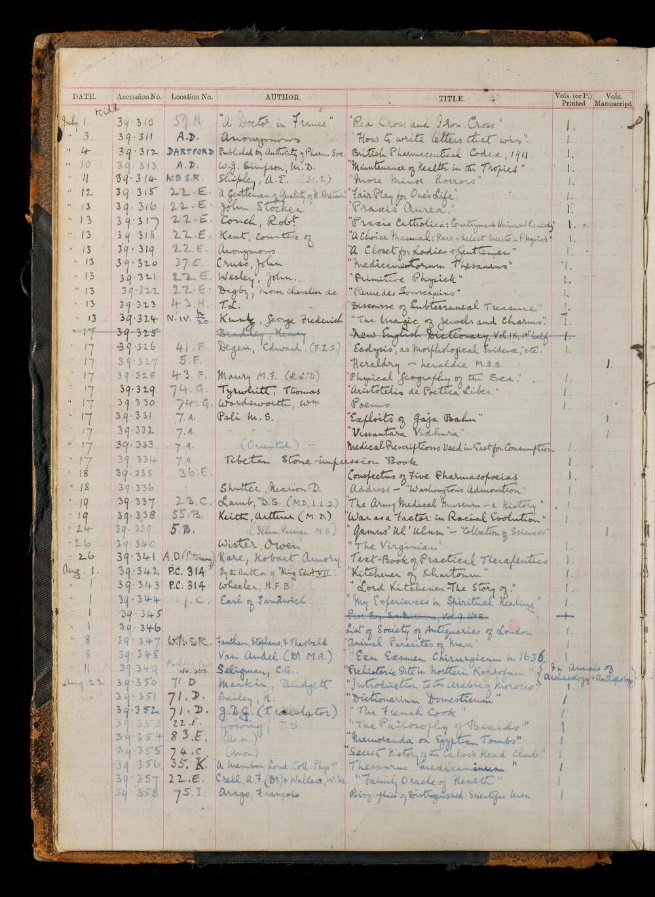 DATE. Accession No. Location No. AUTHOR. TITLE. Vols. (or P.) Printed Vols. Manuscript
July 1. 39.310 59.H. "A Doctor in France" "Red Cross and Iron Cross" 1.
" 3 39.311 A.D. Anonymous "How to write letters that win" 1.
" 4 39.312 DARTFORD Published by Authority of Pharm. Soc. British Pharmaceutical Codex, 1911 1.
" 10 39.313 A.D. W.J. Simpson, M.D. "Maintenance of Health in the Tropics" 1.
" 11 39.314 W.B.S.R. Shipley, A.E. (Sc.D.) "More Minor Horrors" 1.
" 12 39.315 22.E. A Gentleman of Quality "Fair Play for One's Life" 1.
" 13 39.316 22.E. John Stocker "Praxis Aurea" 1.
" 13 39.317 22.E. Couch, Robt "Praxis Catholica: Countryman's Universal Remedy" 1.
" 13 39.318 22.E. Kent, Countess of "A Choice Manual: Rare & Select Secrets in Physick" 1.
" 13 39.319 22.E. Anonymous "A Closet for Ladies & Gentlemen" 1.
" 13 39.320 37.E. Cruso, John "Medicamentorum Thesaurus" 1.
" 13 39.321 22.E. Wesley, John. "Primitive Physick" 1.
" 13 39.322 22.E. Digby, 1.
" 13 39.323 43.H. T.C. "Discourse of Subterraneal Treasure" 1.
" 13 39.324 N.IV. Kunz, George Frederick "The Magic of Jewels and Charms" 1.
" 17 39.325 Bradley, Henry New English Dictionary, Vol IX, 1
" 17 39.326 41.F. Degen, Edward (F.Z.S.) "Ecdysis, as Morphological Evidence, etc. 1.
" 17 39.327 5.F. Heraldry - heraldic M.S.S. 1.
" 17 39.328 43.F. Maury M.F. (LL.D) "Physical Geography of the Sea" 1.
" 17 39.329 74.G. Tyrwhitt, Thomas "Aristotelis de Poetica Liber" 1.
" 17 39.330 74.G. Wordsworth, Wm Poems 1.
" 17 39.331 7.A. Pali M.S. "Exploits of Gaja Bahu" 1
" 17 39.332 7.A. "Vessantara Vidhura" 1
" 17 39.333 7.A. (Oriental) - Medical Prescriptions Used in East for Consumption
" 17 39.334 7.A. Tibetan Stone-impression Book 1
" 18 39.335 36.E. Conspectus of Five Pharmacopoeias 1
" 18 39.336 Shutter, Marion D. Address - "Washington's Admonition" 1
" 19 39.337 23.C. Lamb, D.S. (M.D., L.L.D.) "The Army Medical Museum - a History" 1
" 19 39.338 55.B. Keith, Arthur (M.D.) "War as a Factor in Racial Evolution" 1.
" 24 39.339 5.B. 'Ulum" - "Collection of Sciences" 1
" 26 39.340 Wister, Owen "The Virginian" 1
" 26 39.341 A.D. Hare, Hobart Amory Text-Book of Practical Therapeutics 1
Aug. 1. 39.342 P.C. 31A By the Author of "King Edward VII" "Kitchener of Khartoum" 1
" 1 39.343 P.C. 31A Wheeler, H.F.B. "Lord Kitchener The Story of" 1
1 39.344 Earl of Sandwich "My Experiences in Spiritual Healing" 1
1 39.345 1
1 39.346 List of Society of Antiquaries of London 1
8 39.347 W.B.S.R. Fantham, Stephens, & Theobald Animal Parasites of Man 1
8 39.348 Van Andel (Dr M.A.) "Een Examen Chirurgicum in 1636 1
11 39.349 Seligman, C.G. "Prehistoric Site in Northern Kordofan" In Annals of Archaeology & Anthropology
Aug 22 39.350 71 D Meakin, Budgett "Introduction to the Arabic of Morocco" 1
39.351 71.D. Bailey, N. "Dictionarium Domesticum" 1
39.352 71.D. J.D.G. (Translator) "The French Cook" 1
39.353 22.F. Gowing, T.S. "The Philosophy of Beards" 1
39.354 83.E. (Anon) "Memoranda on Egyptian Tombs" 1
39.355 74.C (Anon) "Secret History of the Calves Head Club" 1
39.356 35.K. A member Lond. Coll. Phys. Thesaurus Medicaminum" 1
39.357 22.E. Crell, A.F. (Dr) & Wallace, W.M. "Family Oracle of Health" 1
39.358 75.I. Arago, François Biographies of Distinguished Scientific Men 1